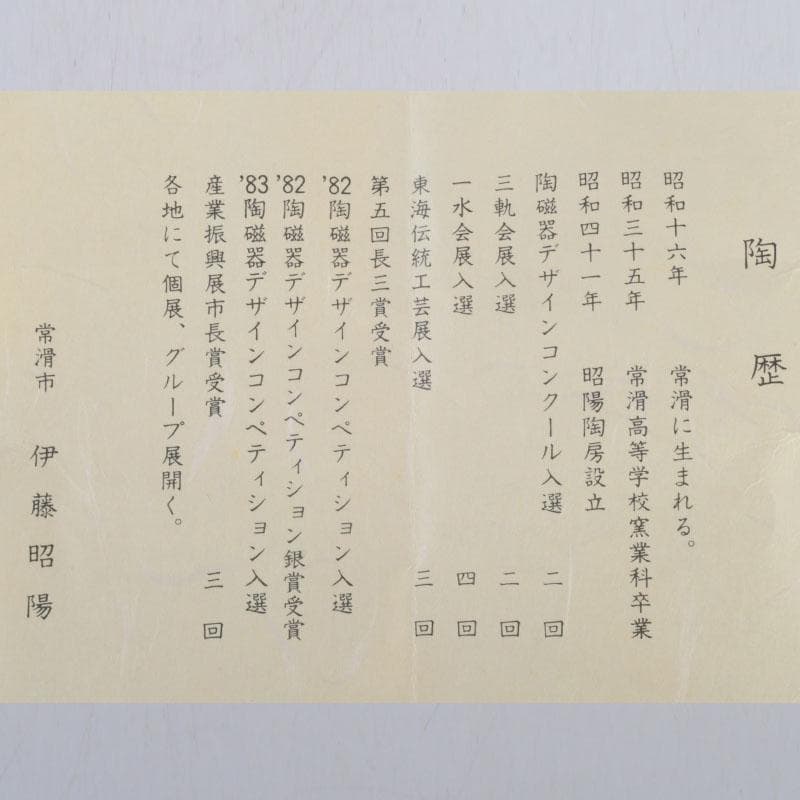 陶歴
昭和十六年 常滑に生まれる。
昭和三十五年 常滑高等学校窯業科卒業
昭和四十一年 昭陽陶房設立
陶磁器デザインコンクール入選 二回
三軌会展入選 二回
一水会展入選 四回
東海伝統工芸展入選 三回
第五回長三賞受賞
'82陶磁器デザインコンペティション入選
'82陶磁器デザインコンペティション銀賞受賞
'83陶磁器デザインコンペティション入選
産業振興展市長賞受賞 三回
各地にて個展、グループ展開く。
常滑市 伊藤昭陽